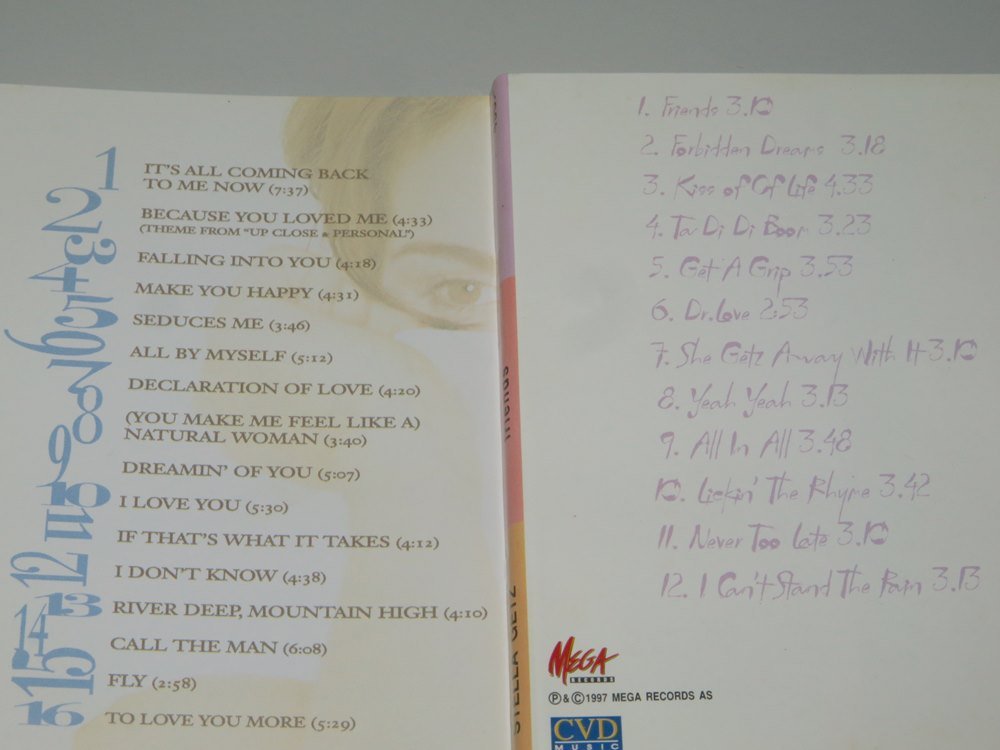 1
2
3
4
5
6
7
8
9
10
11
12
13
14
15
16
IT'S ALL COMING BACK
TO ME NOW (7:37)
BECAUSE YOU LOVED ME (4:33)
(THEME FROM "UP CLOSE & PERSONAL")
FALLING INTO YOU (4:18)
MAKE YOU HAPPY (4:31)
SEDUCES ME (3:46)
ALL BY MYSELF (5:12)
DECLARATION OF LOVE (4:20)
(YOU MAKE ME FEEL LIKE A)
NATURAL WOMAN (3:40)
DREAMIN' OF YOU (5:07)
I LOVE YOU (5:30)
IF THAT'S WHAT IT TAKES (4:12)
I DON'T KNOW (4:38)
RIVER DEEP, MOUNTAIN HIGH (4:10)
CALL THE MAN (6:08)
FLY (2:58)
TO LOVE YOU MORE (5:29)
friends
STELLA GETZ
1. Friends 3.10
2. Forbidden Dreams 3.18
3. Kiss of Of Life 4.33
4. Ta Di Di Boom 3.23
5. Get A Grip 3.53
6. Dr.Love 2:53
7. She Getz Away With It 3.10
8. Yeah Yeah 3.13
9. All In All 3.48
10. Lickin' The Rhyme 3.42
11. Never Too Late 3.10
12. I Can't Stand The Pain 3.13
MEGA
RECORDS
Ⓟ&©1997 MEGA RECORDS AS
CVD
MUSIC